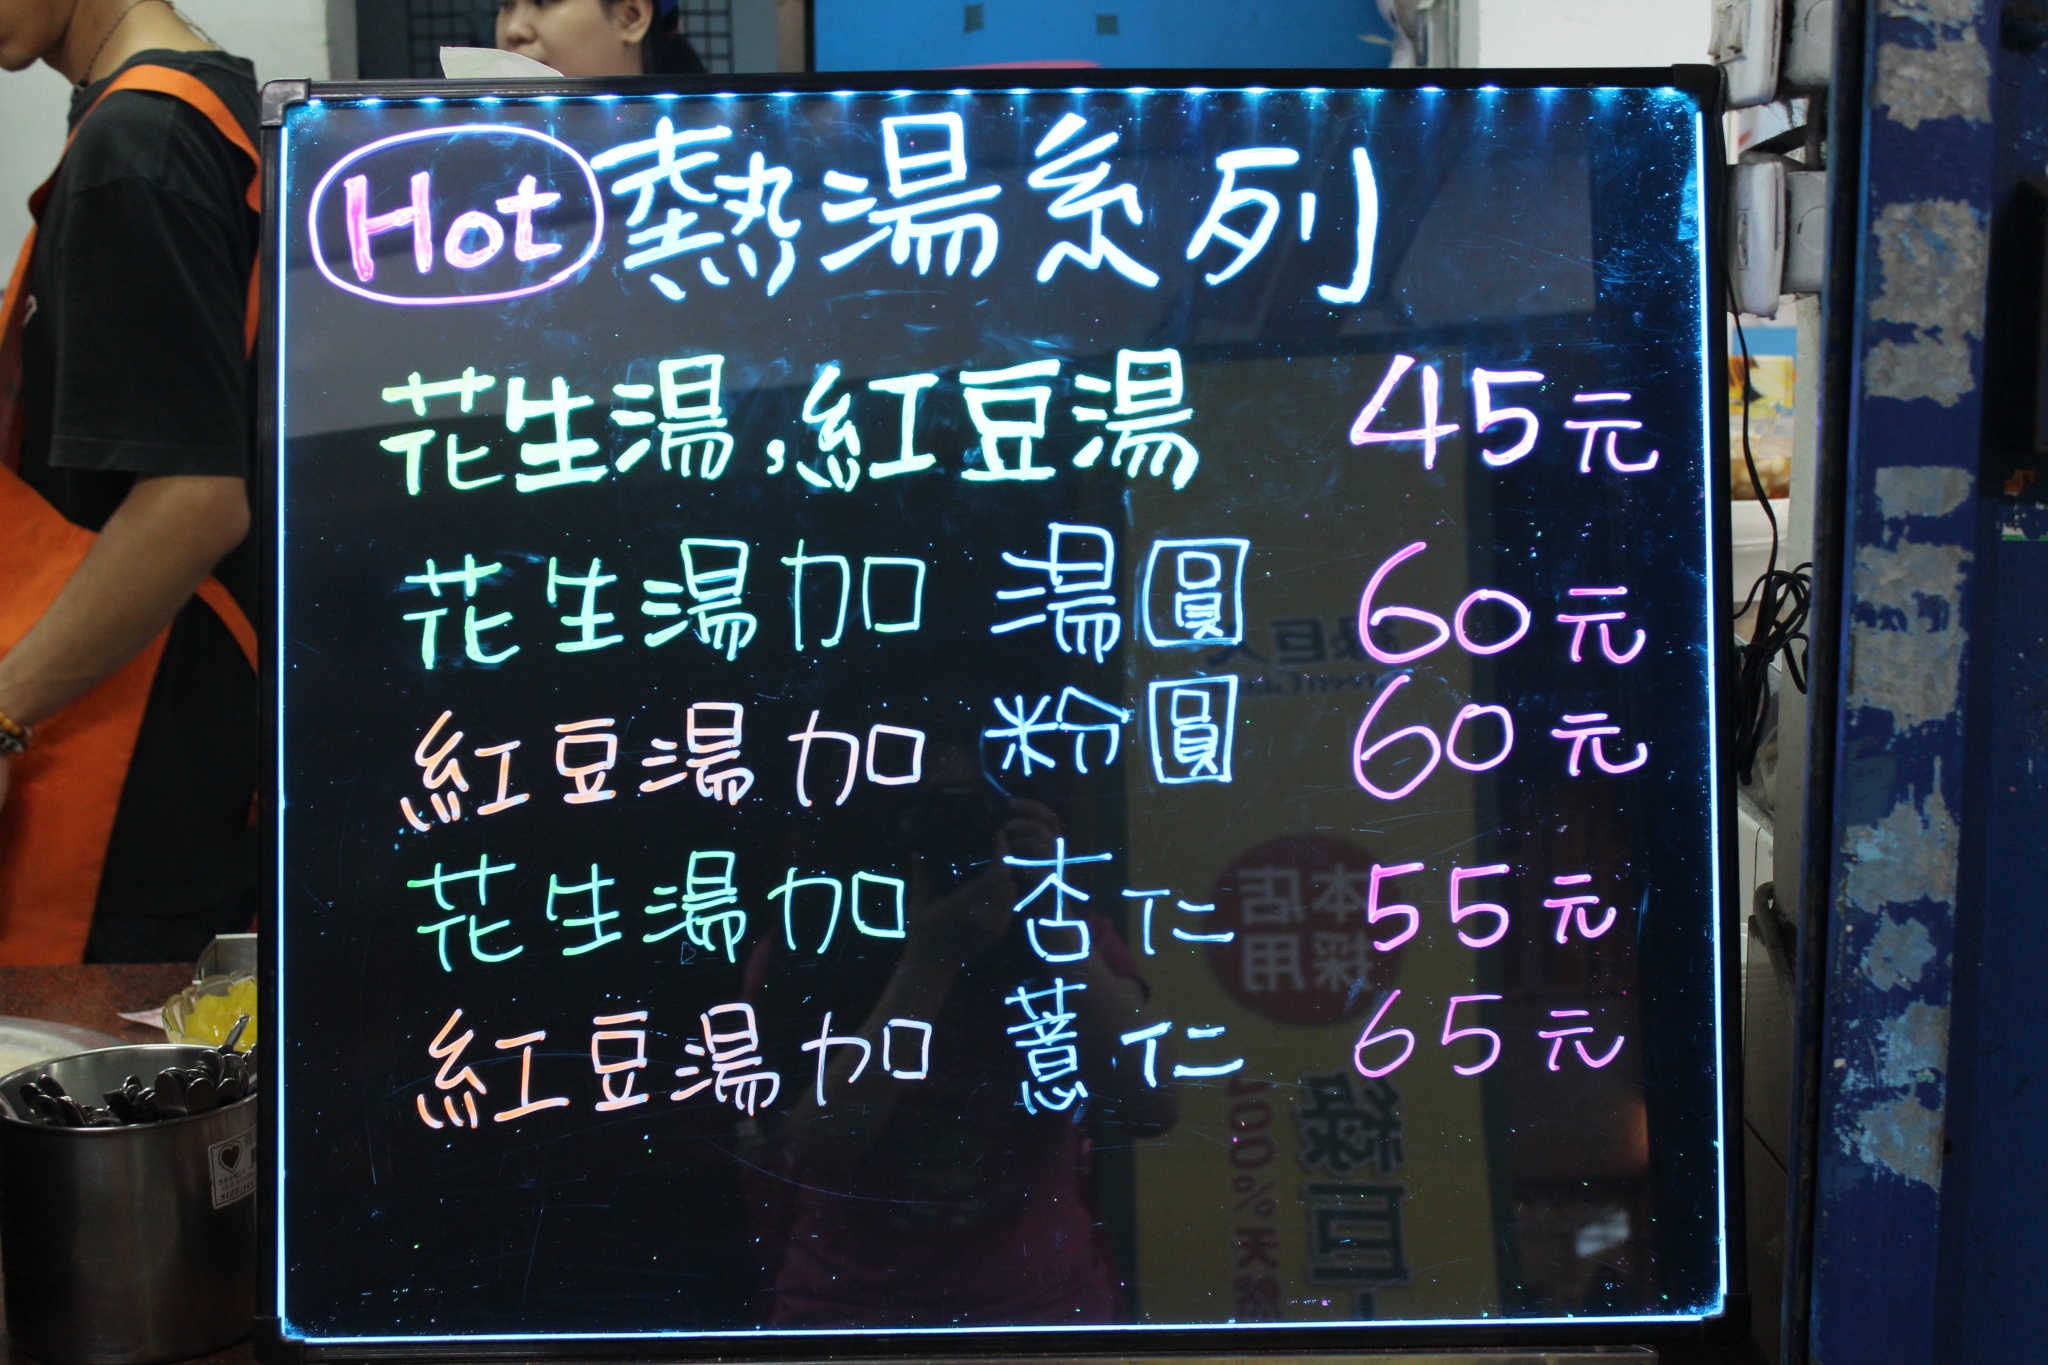 Hot 熱湯系列
花生湯,紅豆湯 45元
花生湯加 湯圓 60元
紅豆湯加 粉圓 60元
花生湯加 杏仁 55元
紅豆湯加 薏仁 65元
本店
採用
綠巨
100%天然